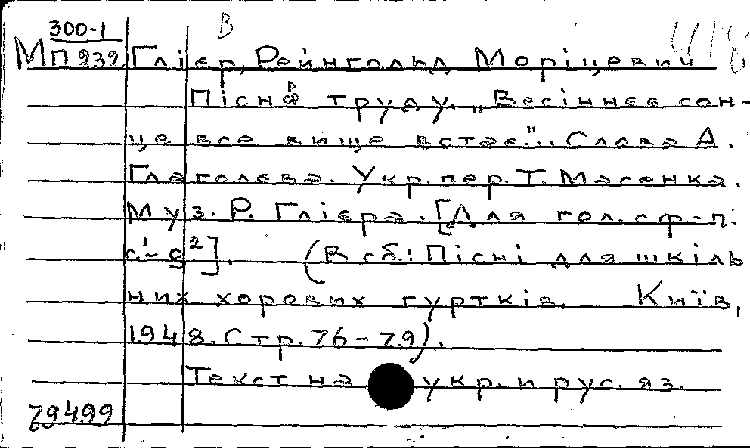 300-1 В
М П 939 Глієр, Рейнгольд Моріцевич.
Пісня труду. „Весіннєе сон-
це все вище встає". Слова А.
Глаголєва. Укр. пер. Т. Масенка.
Муз. Р. Глієра. [Для гол. с ф-п.
с¹-g²]. (В сб.: Пісні для шкіль
них хорових гуртків. Київ,
1948. Стр. 76-79).
Текст на укр. и рус. яз.
79499